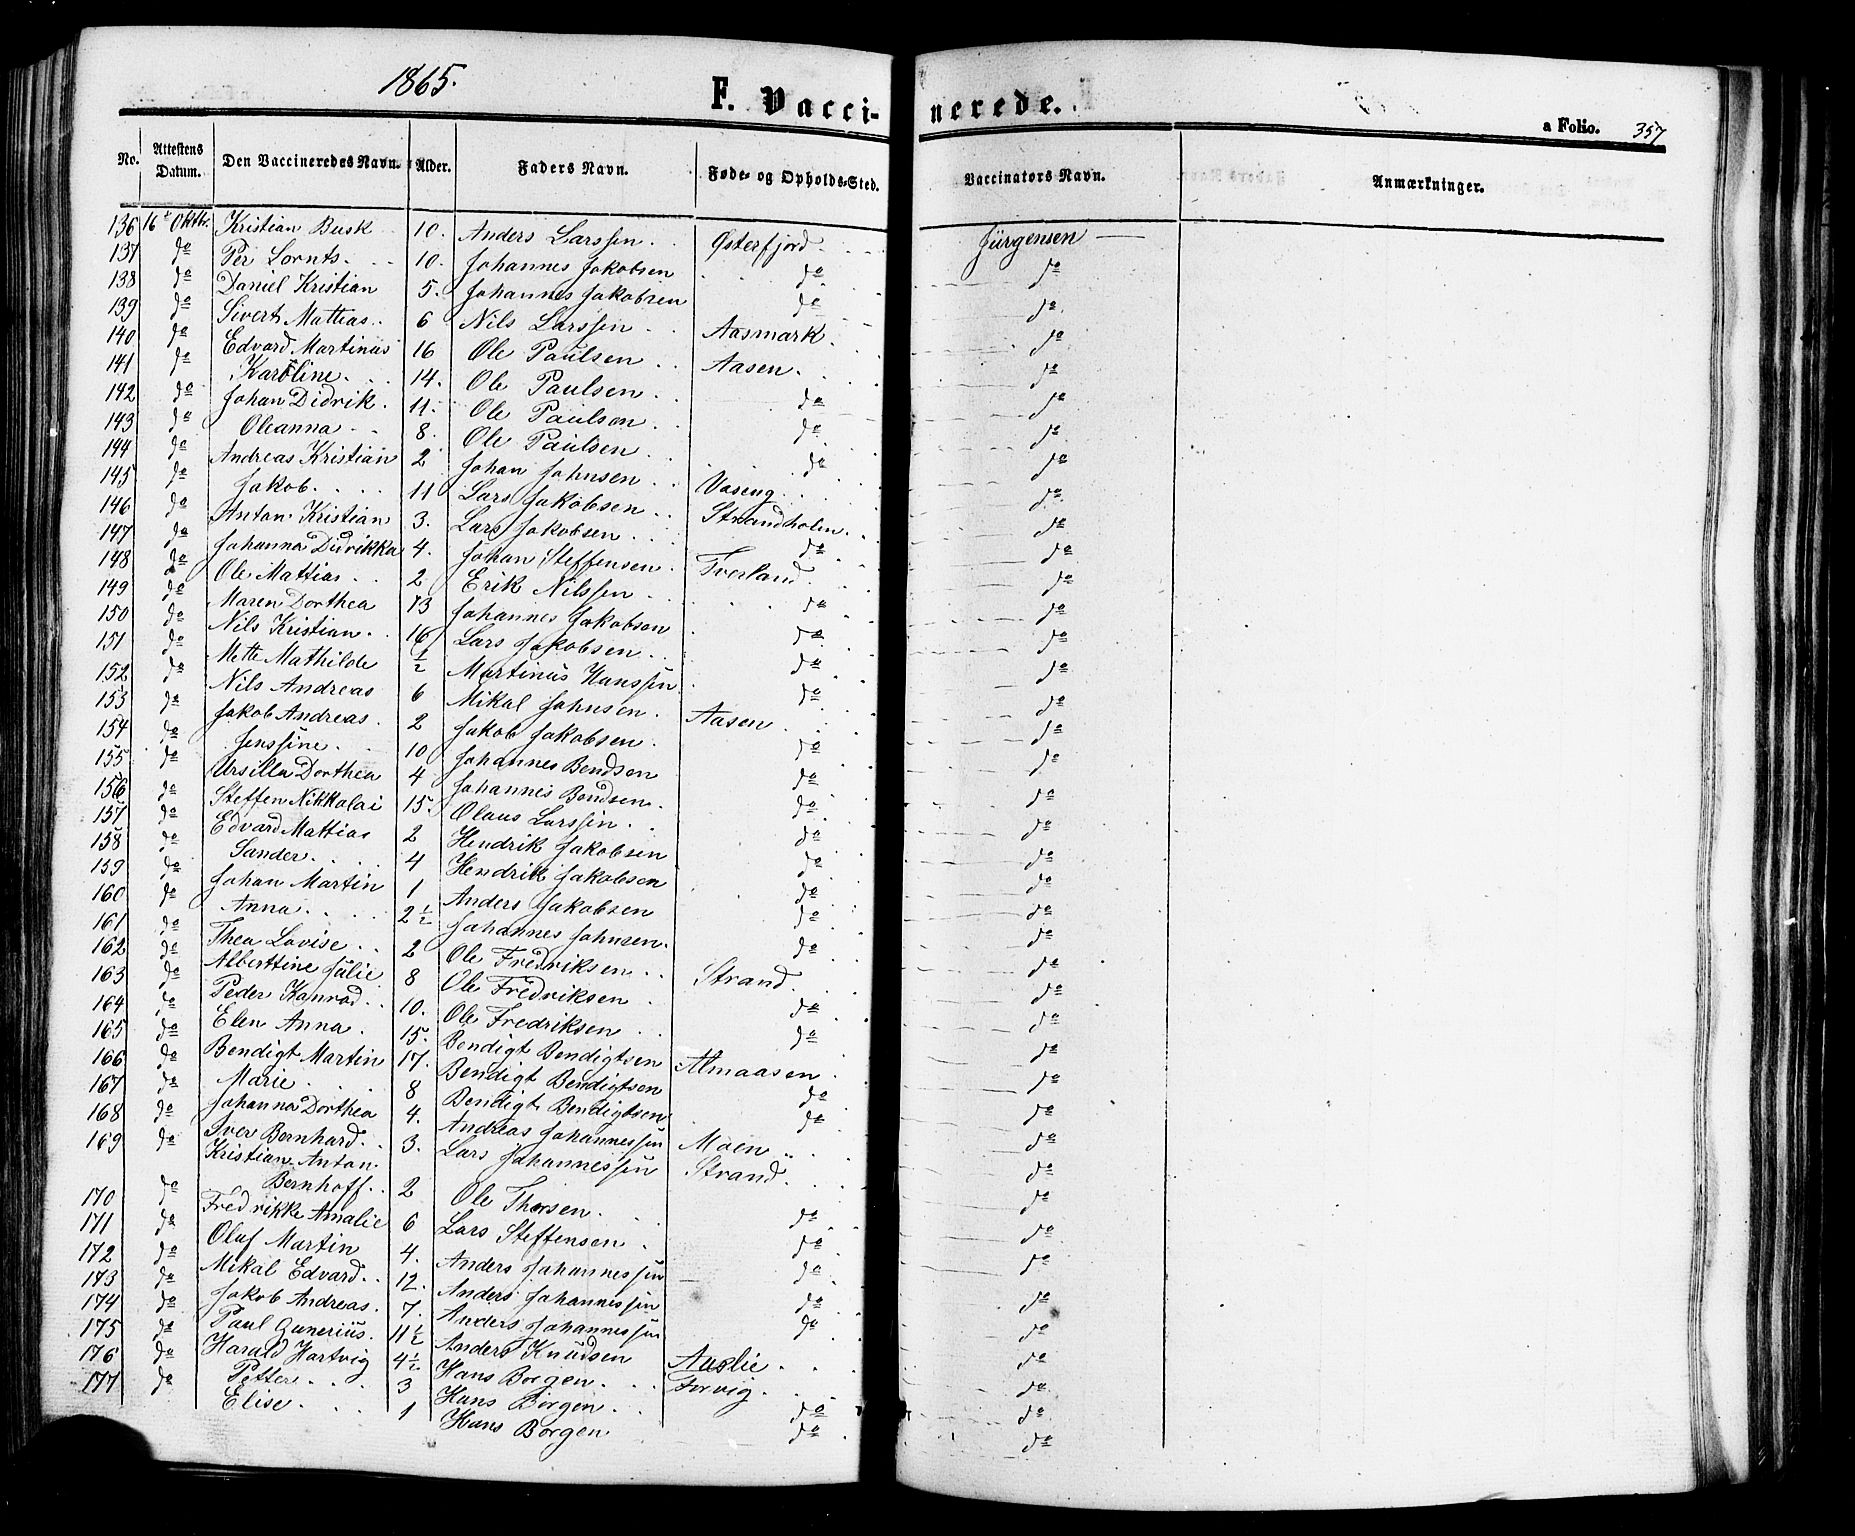 1865.
F. Vaccinerede.
a Folio. 357
No. Attestens Datum. Den Vaccineredes Navn. Alder. Faders Navn. Føde- og Opholds-Sted. Vaccinators Navn. Anmærkninger.
136 16de Oktbr. Kristian Busk 10. Anders Larssen Østerfjord Jürgensen
137 do Per Lornts 10. Johannes Jakobsen do do
138 do Daniel Kristian 5. Johannes Jakobsen do do
139 do Sivert Mattias 6 Nils Larssen Aasmark do
140 do Edvard Martinus 16 Ole Paulsen Aasen do
141 do Karoline 14. Ole Paulsen do do
142 do Johan Didrik 11. Ole Paulsen do do
143 do Oleanna 8. Ole Paulsen do do
144 do Andreas Kristian 2 Johan Johnsen Vaseng do
145 do Jakob 11 Lars Jakobsen Strandholm do
146 do Anton Kristian 3. Lars Jakobsen do do
147 do Johanna Didrikka 4. Johan Steffensen Tverland do
148 do Ole Mattias 2 Erik Nilssen do do
149 do Maren Dorthea 13 Johannes Jakobsen do do
150 do Nils Kristian 16 Lars Jakobsen do do
151 do Mette Mathilde 1/2 Martinus Hanssen do do
152 do Nils Andreas 6 Mikal Johnsen Aasen do
153 do Jakob Andreas 2 Jakob Jakobsen do do
154 do Jenssine 10 Johannes Bendsen do do
155 do Ursilla Dorthea 4 Johannes Bendsen do do
156 do Steffen Nikkolai 15. Olaus Larssen do do
157 do Edvard Mattias 2 Hendrik Jakobsen do do
158 do Sander 4 Hendrik Jakobsen do do
159 do Johan Martin 1 Anders Jakobsen do do
160 do Anna 2 1/2 Johannes Johnsen do do
161 do Thea Lovise 2 Ole Fredriksen Strand do
162 do Alberttine Julie 8 Ole Fredriksen do do
163 do Peder Konrad 10. Ole Fredriksen do do
164 do Elen Anna 15. Bendigt Bendigtsen Almaasen do
165 do Bendigt Martin 17. Bendigt Bendigtsen do do
166 do Marie 8 Bendigt Bendigtsen do do
167 do Johanna Dorthea 4. Andreas Johannessen Moen do
168 do Iver Bernhard 3. Lars Johannessen Strand do
169 do Kristian Anton
Bernhoff 2 Ole Thorsen do do
170 do Fredrikke Amalie 6 Lars Steffensen do do
171 do Oluf Martin 4. Anders Johannessen do do
172 do Mikal Edvard 12. Anders Johannessen do do
173 do Jakob Andreas 7. Anders Johannessen do do
174 do Paul Gunerius 11 1/2 Anders Knudsen Aaslie do
175 do Harald Hartvig 4 1/2 Hans Borgen Forvig do
176 do Petter 3 Hans Borgen do do
177 do Elise 1 Hans Borgen do do